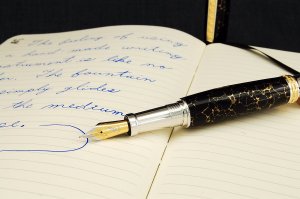 The feeling of using
a hand made writing
instrument is like no
The fountain
simply glides
the medium